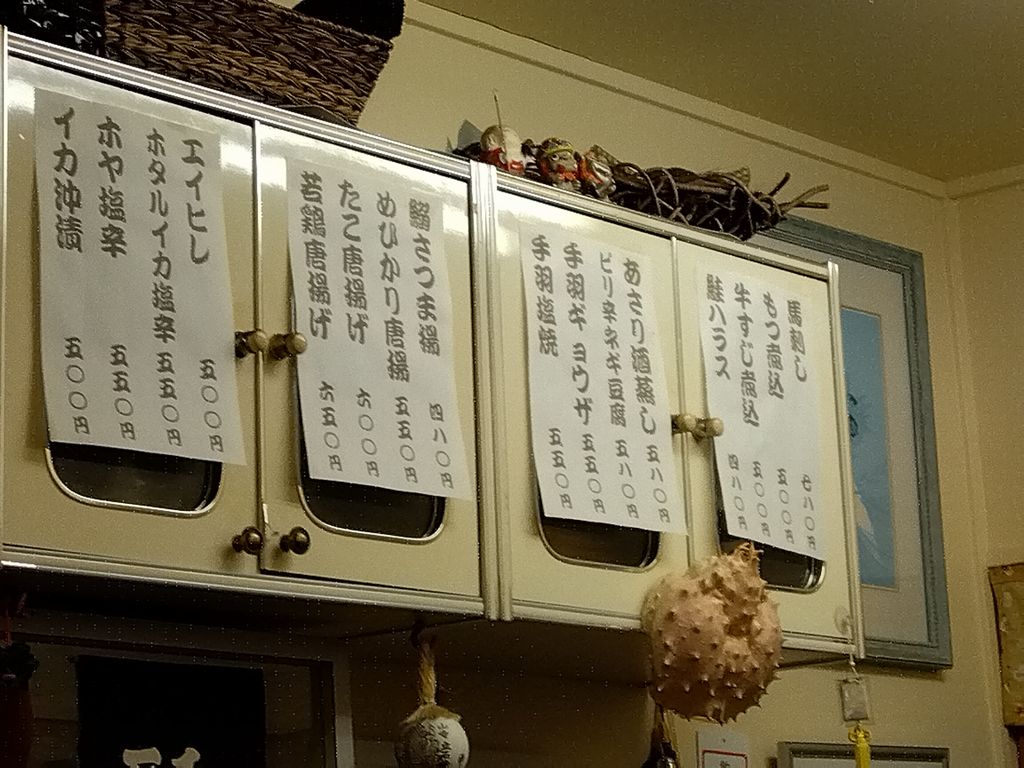 馬刺し 七八〇円
もつ煮込 五〇〇円
牛すじ煮込 五〇〇円
鮭ハラス 四八〇円
あさり酒蒸し 五八〇円
ピリ辛ネギ豆腐 五八〇円
手羽ギョウザ 五五〇円
手羽塩焼 五五〇円
さつま揚 四八〇円
めひかり唐揚 五五〇円
たこ唐揚げ 六〇〇円
若鶏唐揚げ 六五〇円
エイヒレ 五〇〇円
ホタルイカ塩辛 五五〇円
ホヤ塩辛 五五〇円
イカ沖漬 五〇〇円